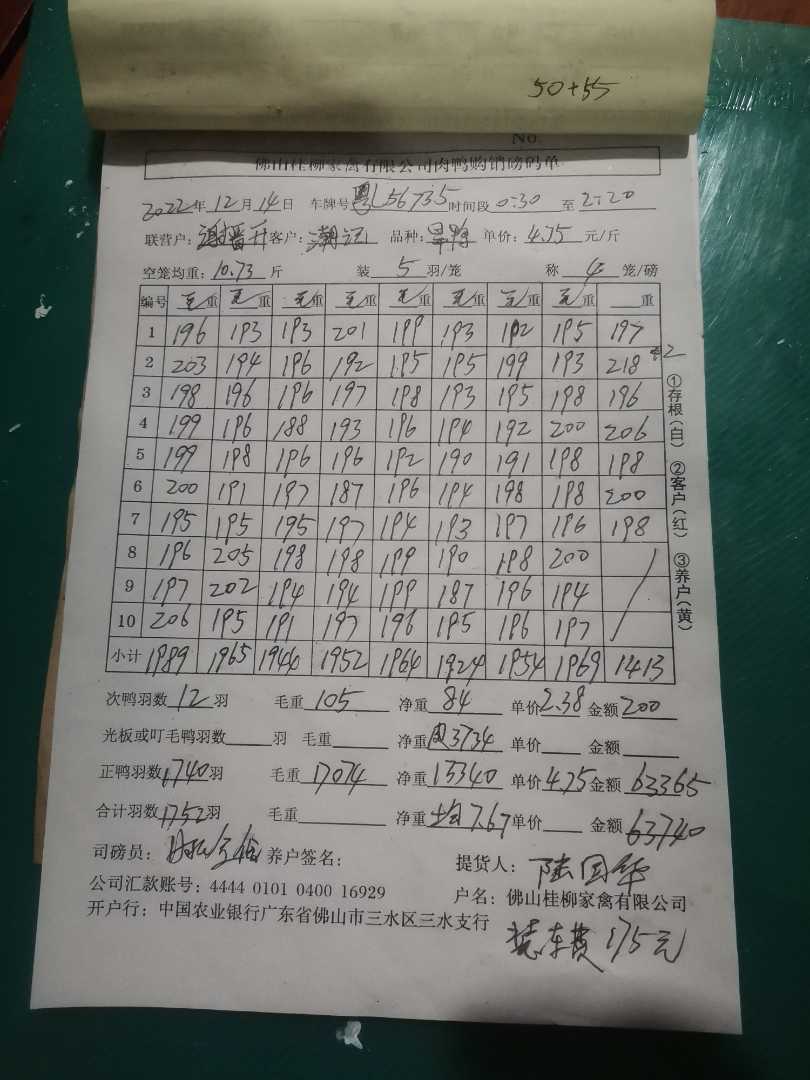 50+55
No.
佛山桂柳家禽有限公司肉鸭购销磅码单
2022年12月14日 车牌号粤L56735时间段0:30至2:20
联营户: 客户:潮记 品种:旱鸭 单价:4.75元/斤
空笼均重:10.73斤 装5羽/笼 称4笼/磅
编号 毛重 毛重 毛重 毛重 毛重 毛重 毛重 毛重 重
1 196 193 193 201 199 193 192 195 197
2 203 194 196 192 195 195 199 193 218 2
3 198 196 196 197 198 193 195 198 196
4 199 196 188 193 196 194 192 200 206
5 199 198 196 196 192 190 191 198 198
6 200 191 197 187 196 194 198 198 200
7 195 195 195 197 194 193 197 196 198
8 196 205 198 198 199 190 198 200
9 197 202 194 194 199 187 196 194
10 206 195 191 197 196 195 196 197
小计 1989 1965 1944 1952 1964 1924 1954 1969 1413
次鸭羽数12羽 毛重105 净重84 单价2.38 金额200
光板或叮毛鸭羽数 羽 毛重 净重 3734 单价 金额
正鸭羽数1740羽 毛重17074 净重13340 单价4.75 金额63365
合计羽数1752羽 毛重 净重均7.67 单价 金额63740
司磅员: 养户签名: 提货人:陆国华
公司汇款账号:4444 0101 0400 16929 户名:佛山桂柳家禽有限公司
开户行:中国农业银行广东省佛山市三水区三水支行
装车费175元
①存根(白) ②客户(红) ③养户(黄)